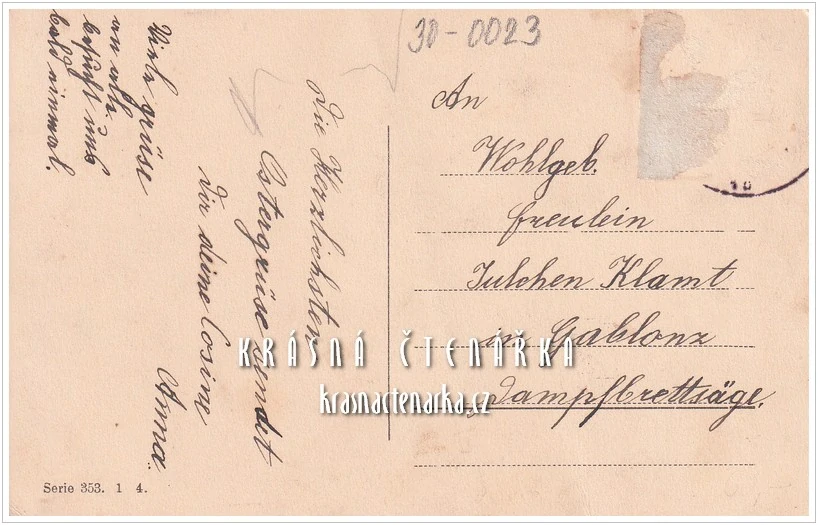 30-0023
Die Herzlichsten
Ostergrüse sendet
Dir deine Cosine
Anna.
Viele grüse
an alle
besucht uns
bald einmal.
An
Wohlgeb.
Freulein
Julchen Klamt
in Gablonz
Dampfbrettsäge.
10
KRÁSNÁ ČTENÁŘKA
krasnactenarka.cz
Serie 353. 1 4.